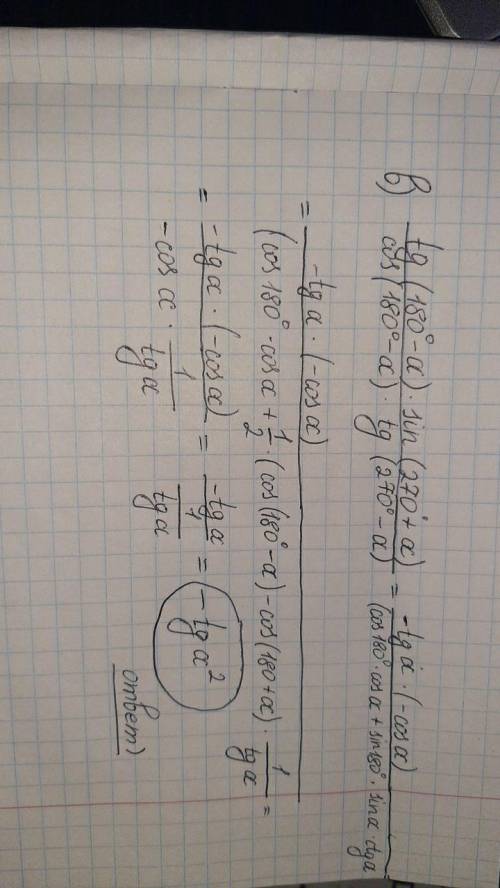 в) tg (180° - α) · sin (270° + α) / cos (180° - α) · tg (270° - α) = -tg α · (-cos α) / (cos 180° · cos α + sin 80° · sin α · dgα
= -tg α · (-cos α) / (cos 180° · cos α + 1/2 · (cos (180° - α) - cos (180 + α) · 1/tg α =
= -tg α · (-cos α) / -cos α · 1/tg α = -tg α / 1/tg α = -tg α²
ответ)